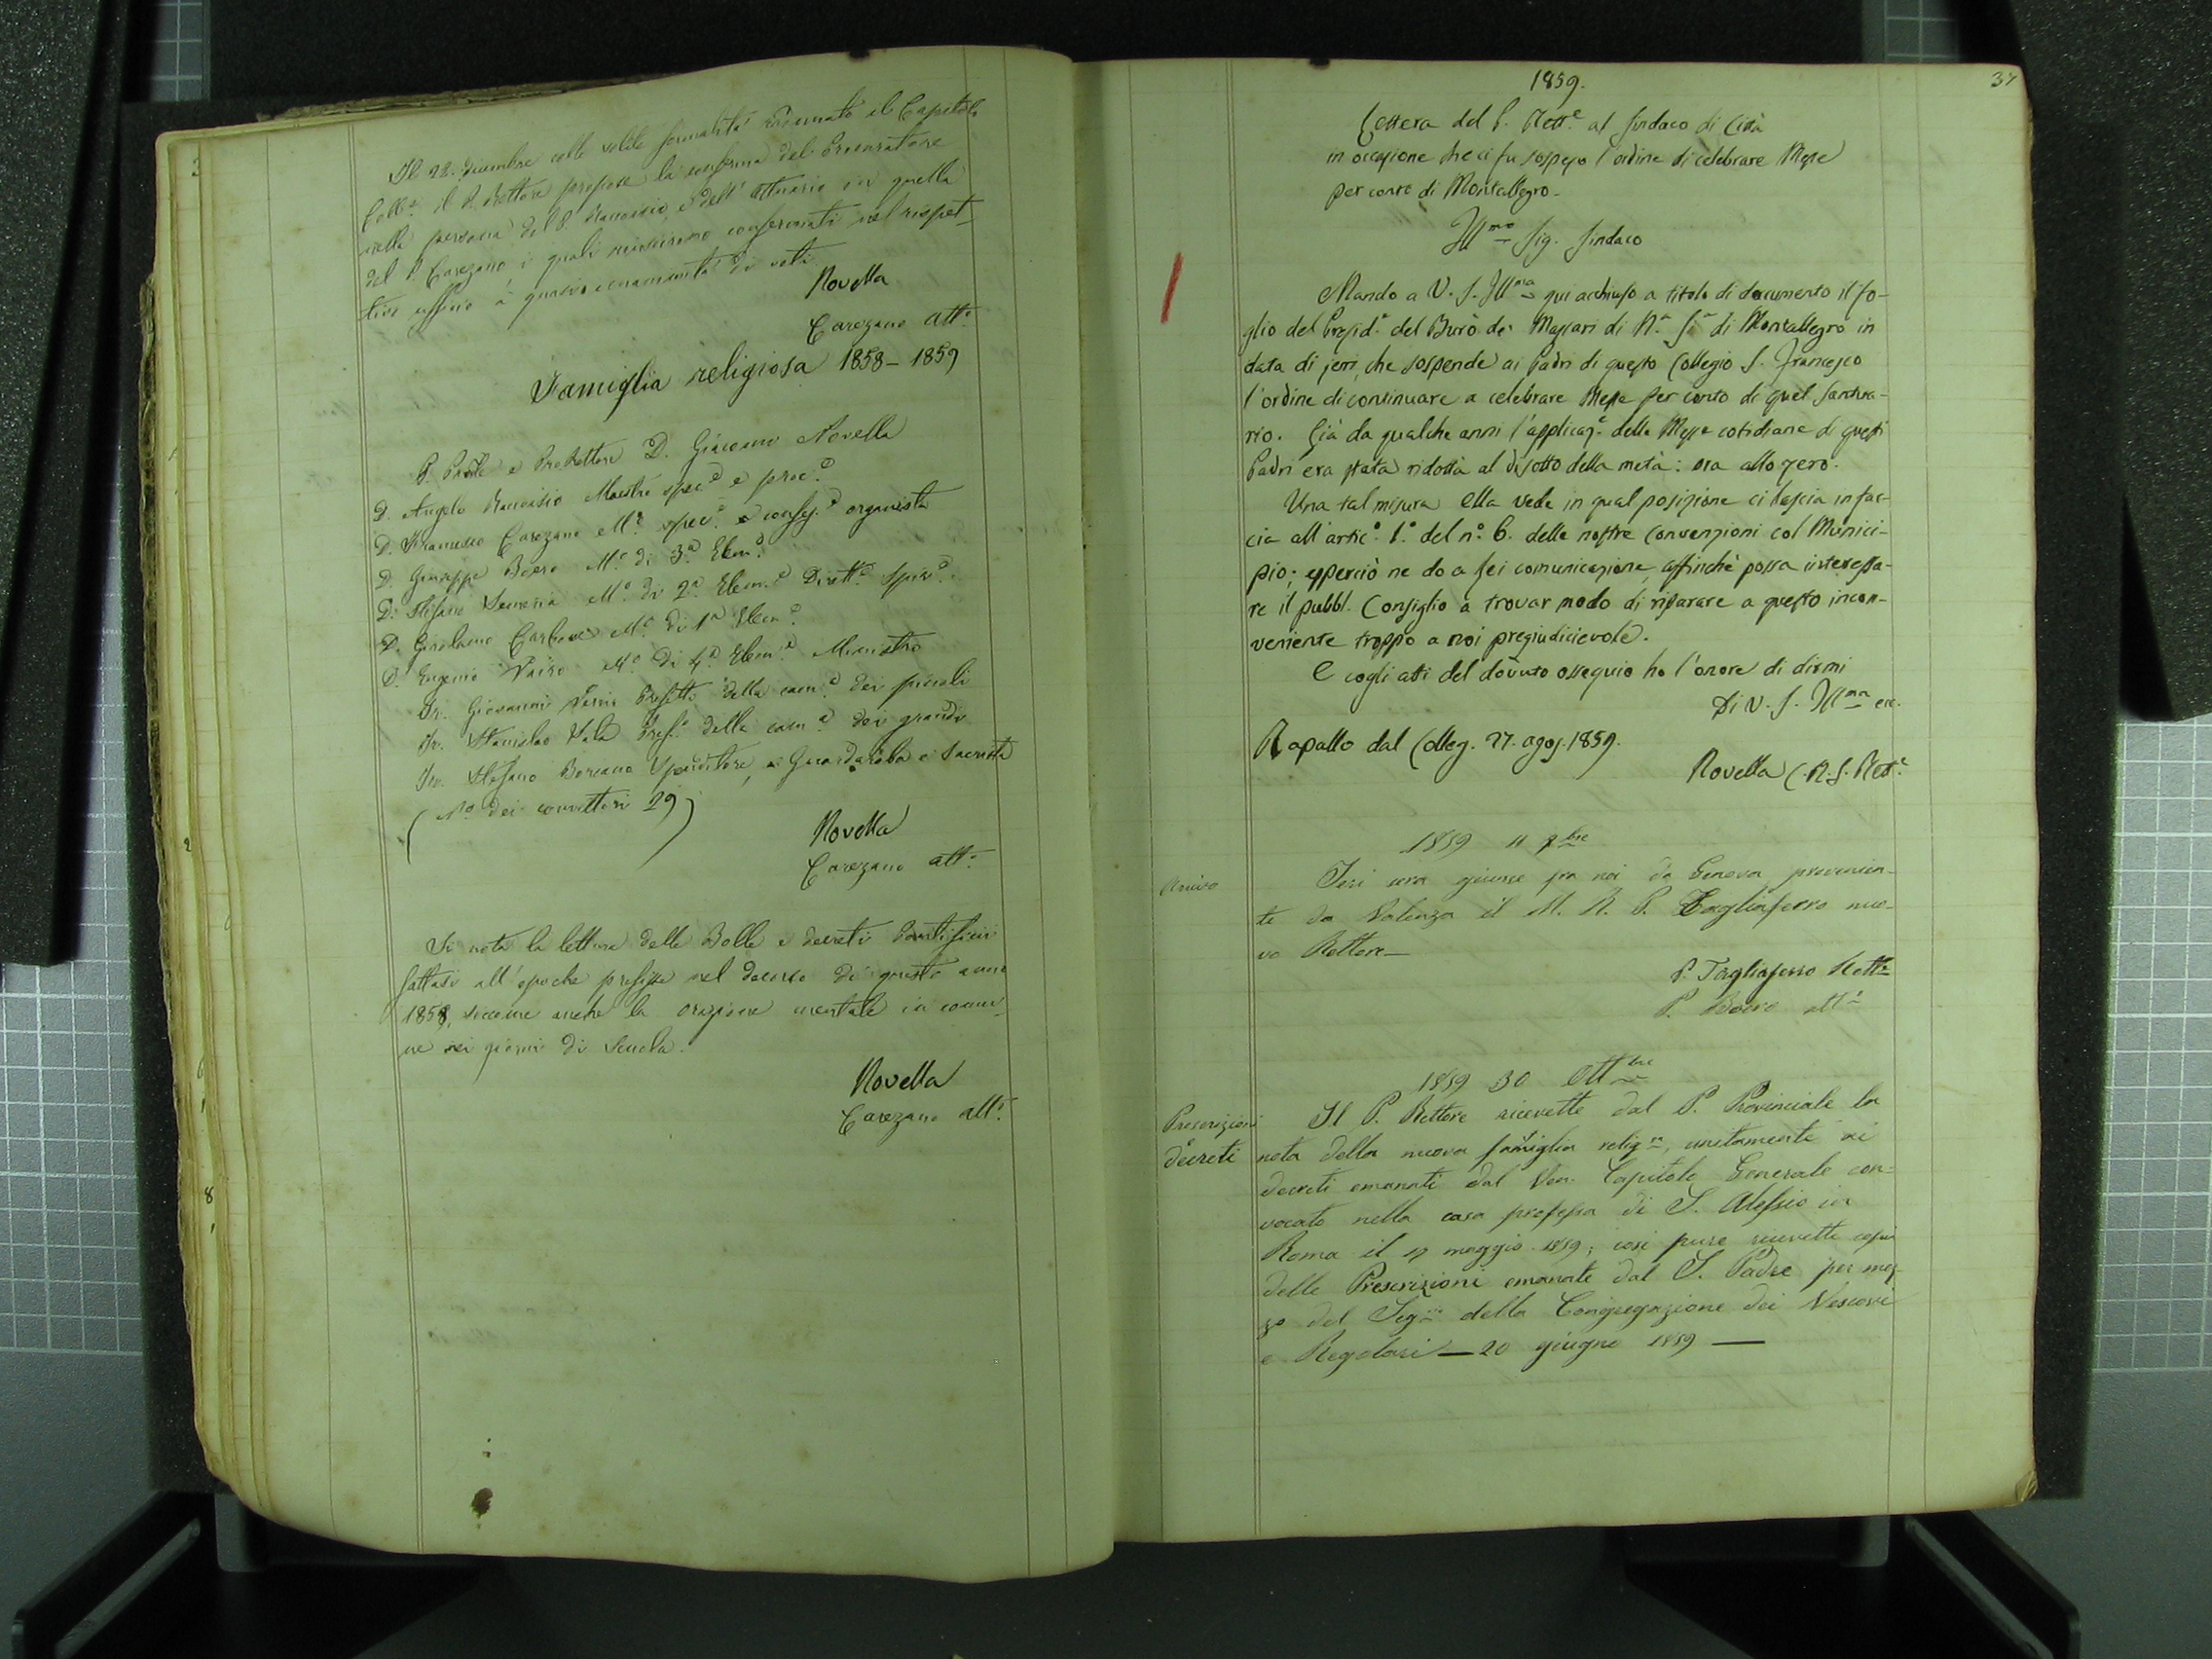 Il 22. dicembre colle solite formalità radunato il Capitolo
Coll.e il P. Rettore propose la conferma del Procuratore
nella persona del P. e dell' Attuario in quella
del P. Carezano i quali riuscirono confermati nel rispet-
tivo officio a di voti.
Novella
Carezano att.o
Famiglia religiosa 1858 - 1859
P. e Rettore D. Giacomo Novella
D. Angelo Maestro spec.e e proc.e
D. Francesco Carezano M.o spec.e e organista
D. Giuseppe Boero M.o di 3.a Elem.e
D. Stefano Semeria M.o di 2.a Elem.e Dirett.e Spir.e
D. Girolamo M.o di 1.a Elem.e
D. Eugenio Vairo M.o di 4.a Elem.e Ministro
Fr. Giovanni Prefetto della cam.a dei piccoli
Fr. Stanislao Sala Pref.o della cam.a dei grandi
Fr. Stefano Spenditore, Guardaroba e Sacrista
(N.o dei convittori 29)
Novella
Carezano att.o
Si nota la lettura delle Bolle e decreti Pontificii
fattasi all' epoche prefisse nel decorso di questo anno
1858, siccome anche la orazione mentale in comu-
ne nei giorni di scuola.
Novella
Carezano att.o
1859.
37
Lettera del P. Rett.e al Sindaco di Città
in occasione che ci fu sospeso l'ordine di celebrare Messe
per conto di Montallegro -
Ill.mo Sig. Sindaco
Mando a V. S. Ill.ma qui acchiuso a titolo di documento il fo-
glio del Presid.e del Burò dei Massari di N.a S.a di Montallegro in
data di jeri, che sospende ai Padri di questo Collegio S. Francesco
l'ordine di continuare a celebrare Messe per conto di quel Santua-
rio. Già da qualche anni l'applicaz.e delle Messe cotidiane di questi
Padri era stata ridotta al disotto della metà: ora allo zero.
Una tal misura Ella vede in qual posizione ci lascia in fac-
cia all'artic.o 1.o del n.o 6. delle nostre Convenzioni col Munici-
pio; epperciò ne do a Lei comunicazione, affinchè possa interessa-
re il pubbl. Consiglio a trovar modo di riparare a questo incon-
veniente troppo a noi pregiudicievole.
E cogli atti del dovuto ossequio ho l'onore di dirmi
Di V. S. Ill.ma ecc.
Rapallo dal Colleg. 27. agos. 1859.
Novella C.R.S. Rett.e
1859 11 9bre
Arrivo
Jeri sera giunse fra noi da Genova provenien-
te da Valenza il M. R. P. Tagliaferro nuo-
vo Rettore -
P. Tagliaferro Rett.e
P. Boero att.o
1859 30 Ott.bre
Prescrizioni
e
decreti
Il P. Rettore ricevette dal P. Provinciale la
nota della nuova famiglia relig.sa, unitamente ai
decreti emanati dal Ven. Capitolo Generale con-
vocato nella casa professa di S. Alessio in
Roma il 17 maggio 1859; così pure ricevette copia
delle Prescrizioni emanate dal S. Padre per mez-
zo del Seg.rio della Congregazione dei Vescovi
e Regolari — 20 giugno 1859 —